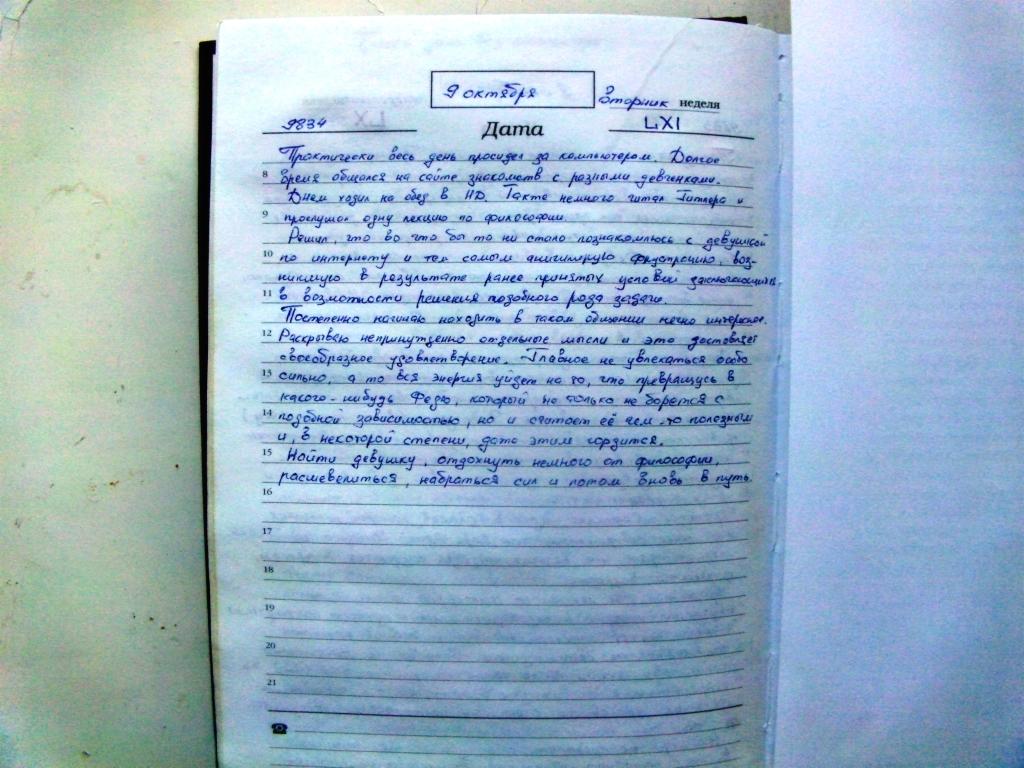 9 октября
Вторник неделя
9834
Дата
LXI
Практически весь день просидел за компьютером. Долгое
8 время общался на сайте знакомств с разными девчонками.
Днем ходил на обед в НД. Также немного читал Гитлера и
9 прослушал одну лекцию по философии.
Решил, что во что бы то ни стало познакомлюсь с девушкой
10 по интернету и тем самым аннигилирую фрустрацию, воз-
никшую в результате ранее принятых условий заключающихся
11 в возможности решения подобного рода задачи.
Постепенно начинаю находить в таком общении нечто интересное.
12 Раскрываю непринужденно отдельные мысли и это доставляет
своеобразное удовлетворение. Главное не увлекаться особо
13 сильно, а то вся энергия уйдет на то, что превращусь в
какого-нибудь Федю, который не только не борется с
14 подобной зависимостью, но и считает её чем-то полезным
и, в некоторой степени, даже этим гордится.
15 Найти девушку, отдохнуть немного от философии,
расшевелиться, набраться сил и потом вновь в путь.
16
17
18
19
20
21